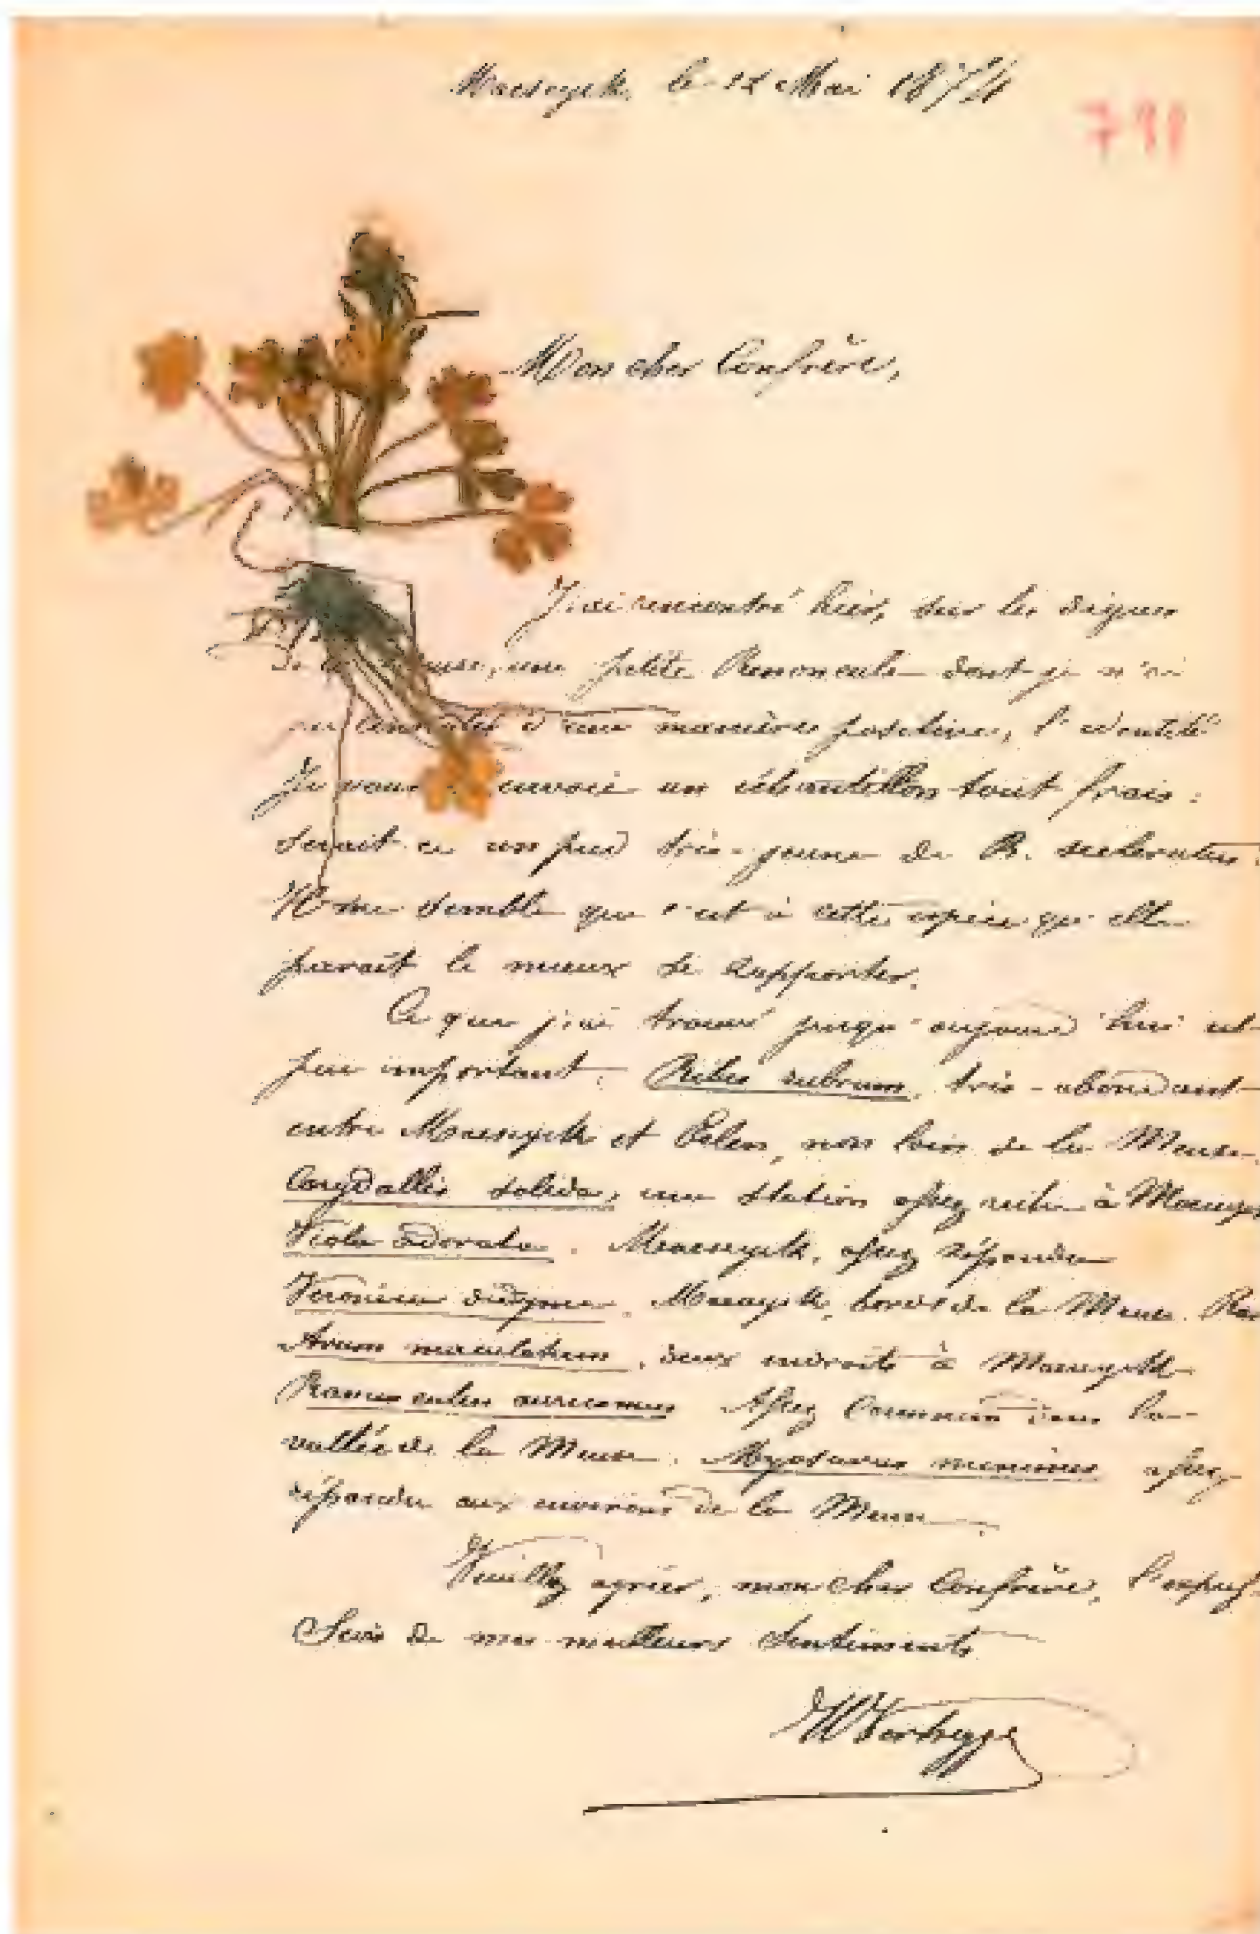 Maeseyck, le 12 Mai 1874
791
Mon cher Confrère,
J'ai rencontré hier, sur les digues
de la Meuse, une petite Renoncule dont je n'ai
pu constater d'une manière positive, l'identité
Je vous envoie un échantillon tout frais :
Serait ce un pied très-jeune de R. sceleratus
Il me semble que c'est à cette espèce qu'elle
parait le mieux se rapporter.
Ce que j'ai trouvé jusqu'aujourd'hui est
peu important. Ribes rubrum, très-abondant
entre Maeseyck et Eelen, non loin de la Meuse.
Corydallis solida, une station assez riche à
Viola odorata. Maeseyck, assez répandu
Veronica didyma. Maeseyck, bords de la Meuse.
Arum maculatum, deux endroits à Maeseyck
Ranunculus auricomus Assez commun dans la
vallée de la Meuse. Myosurus minimus assez
répandu aux environs de la Meuse.
Veuillez agréer, mon cher Confrère, l'expres-
sion de mes meilleurs sentiments